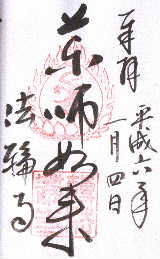 奉拝
平成六年
一月四日
薬師如来
法輪寺